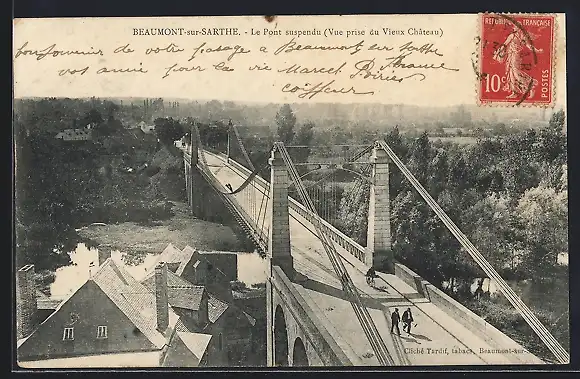 BEAUMONT-sur-SARTHE. - Le Pont suspendu (Vue prise du Vieux Château)
bon souvenir de votre passage a Beaumont sur
vos amis pour la vie Marcel
coiffeur
REPUBLIQUE FRANÇAISE
10c
POSTES
Cliché Tardif, tabacs, Beaumont-s-